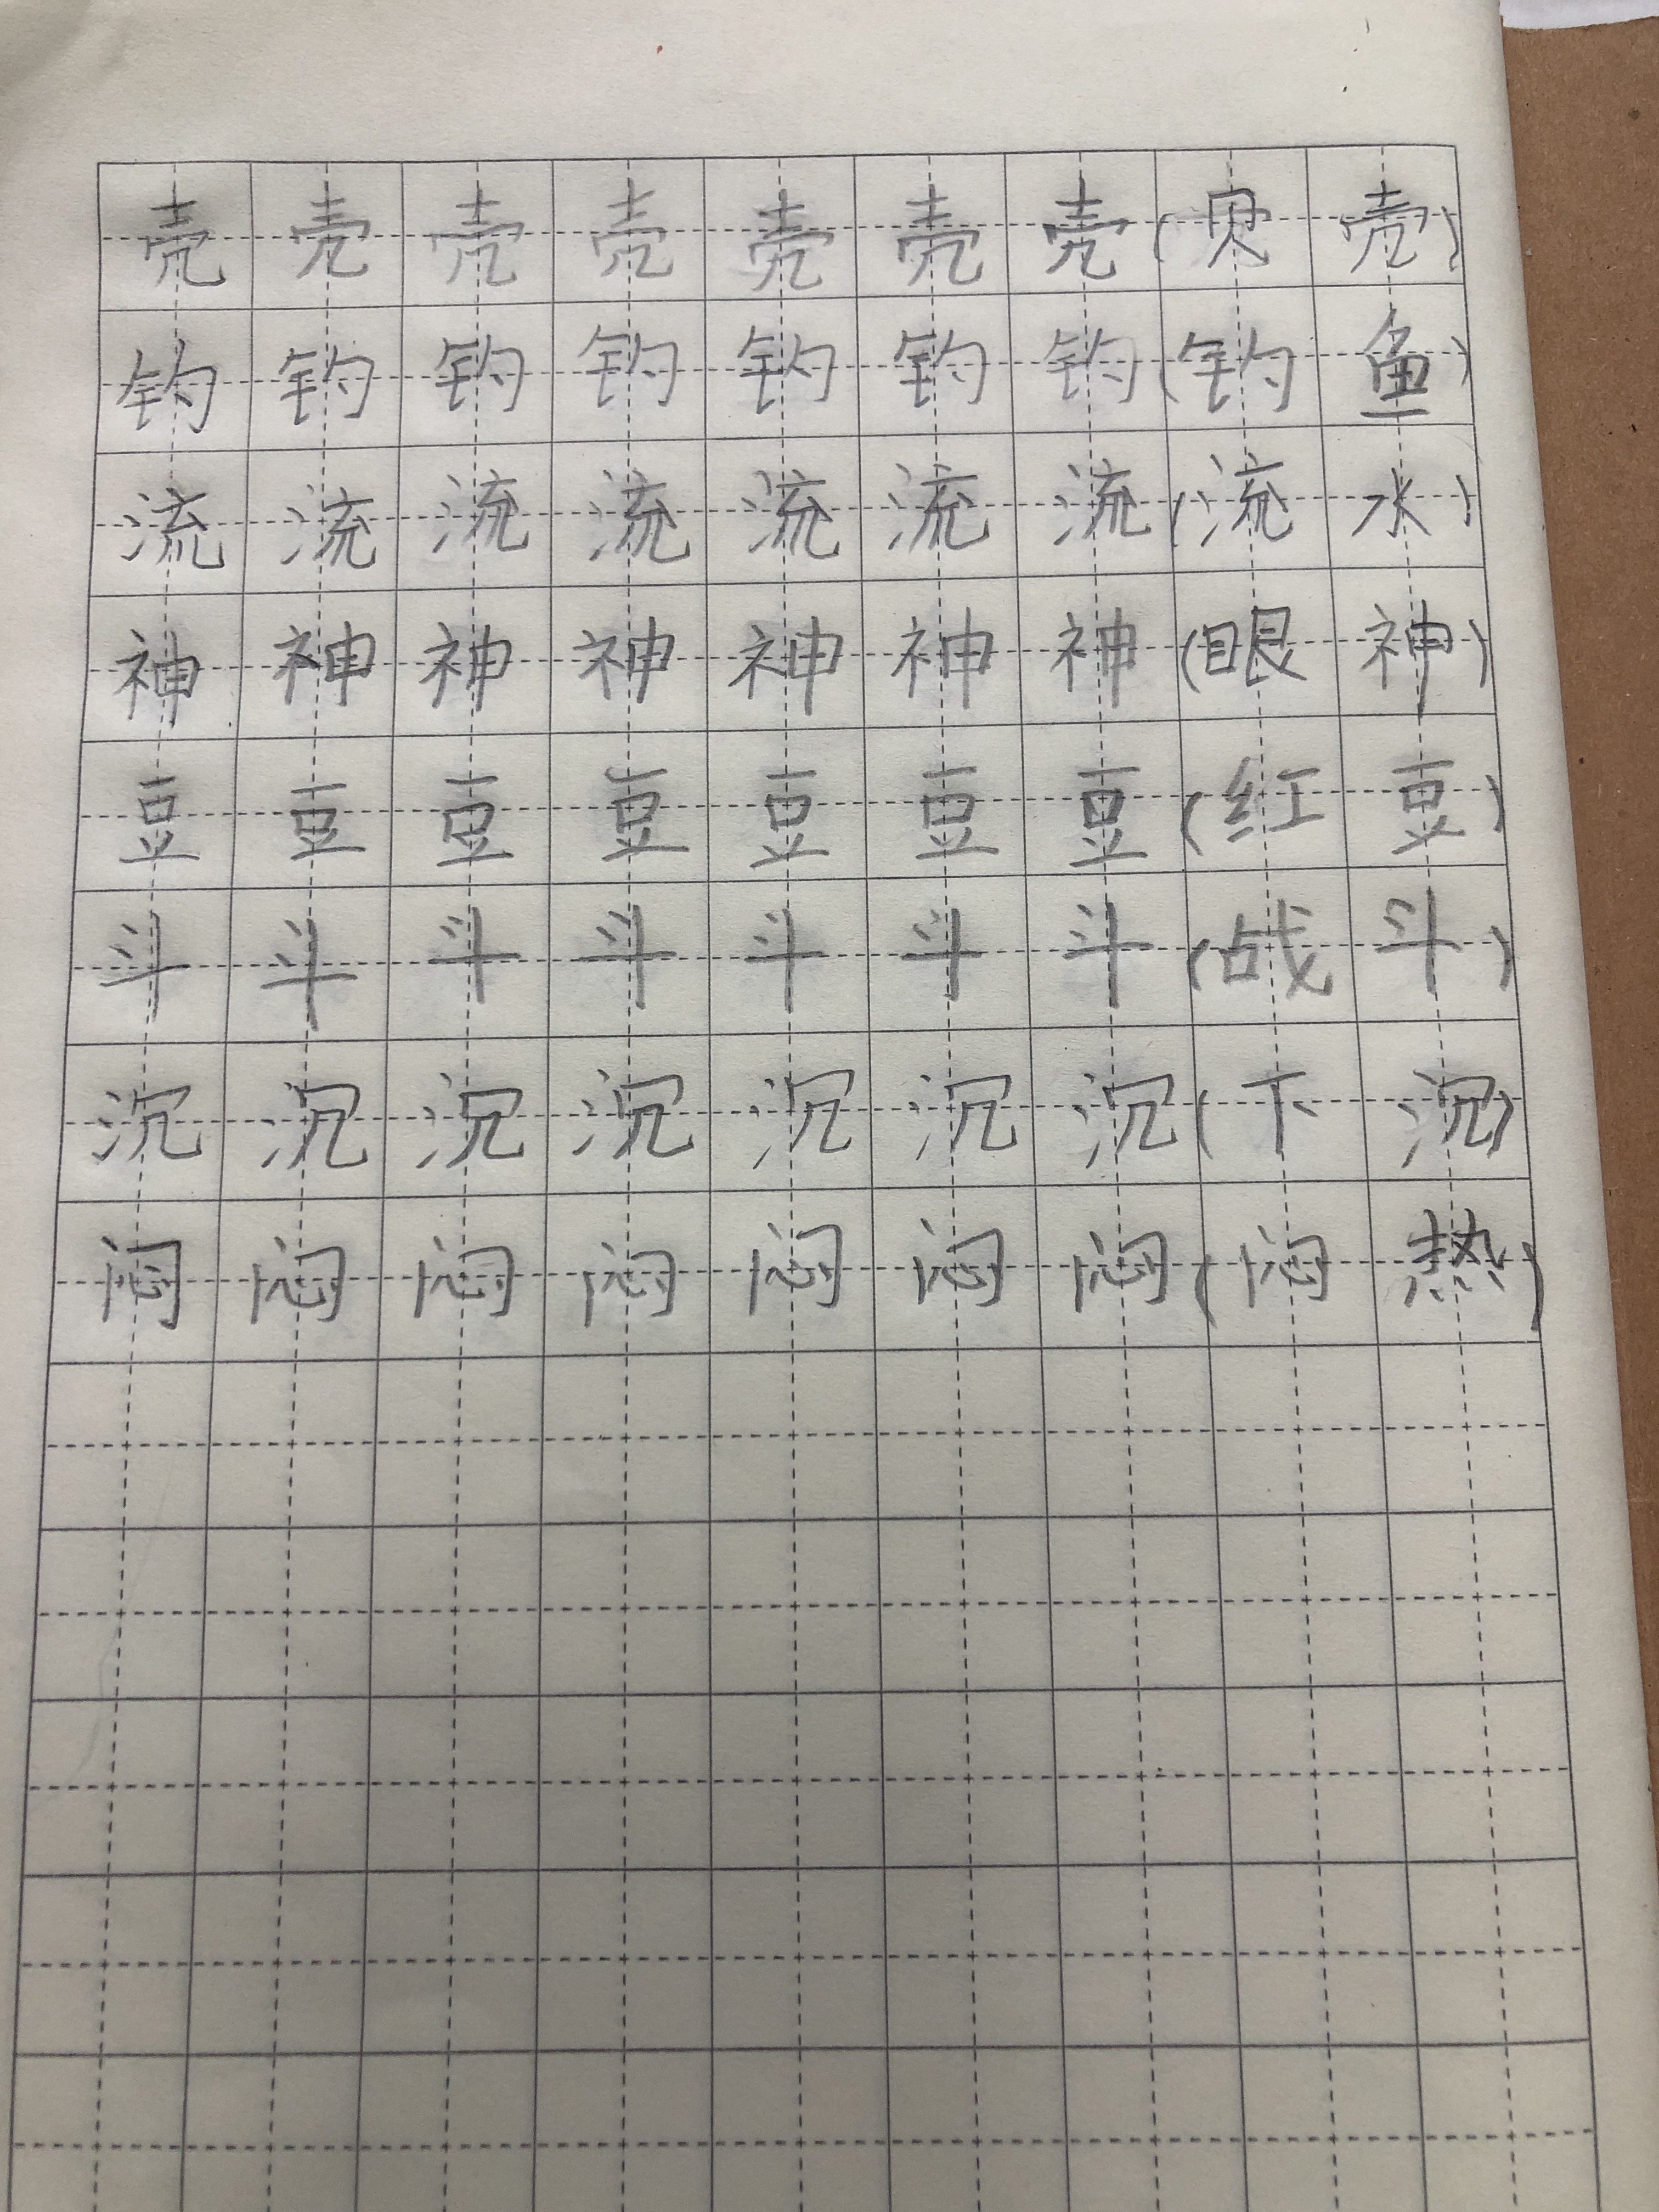 壳壳壳壳壳壳壳(贝壳)
钓钓钓钓钓钓钓(钓鱼)
流流流流流流流(流水)
神神神神神神神(眼神)
豆豆豆豆豆豆豆(红豆)
斗斗斗斗斗斗斗(战斗)
沉沉沉沉沉沉沉(下沉)
闷闷闷闷闷闷闷(闷热)